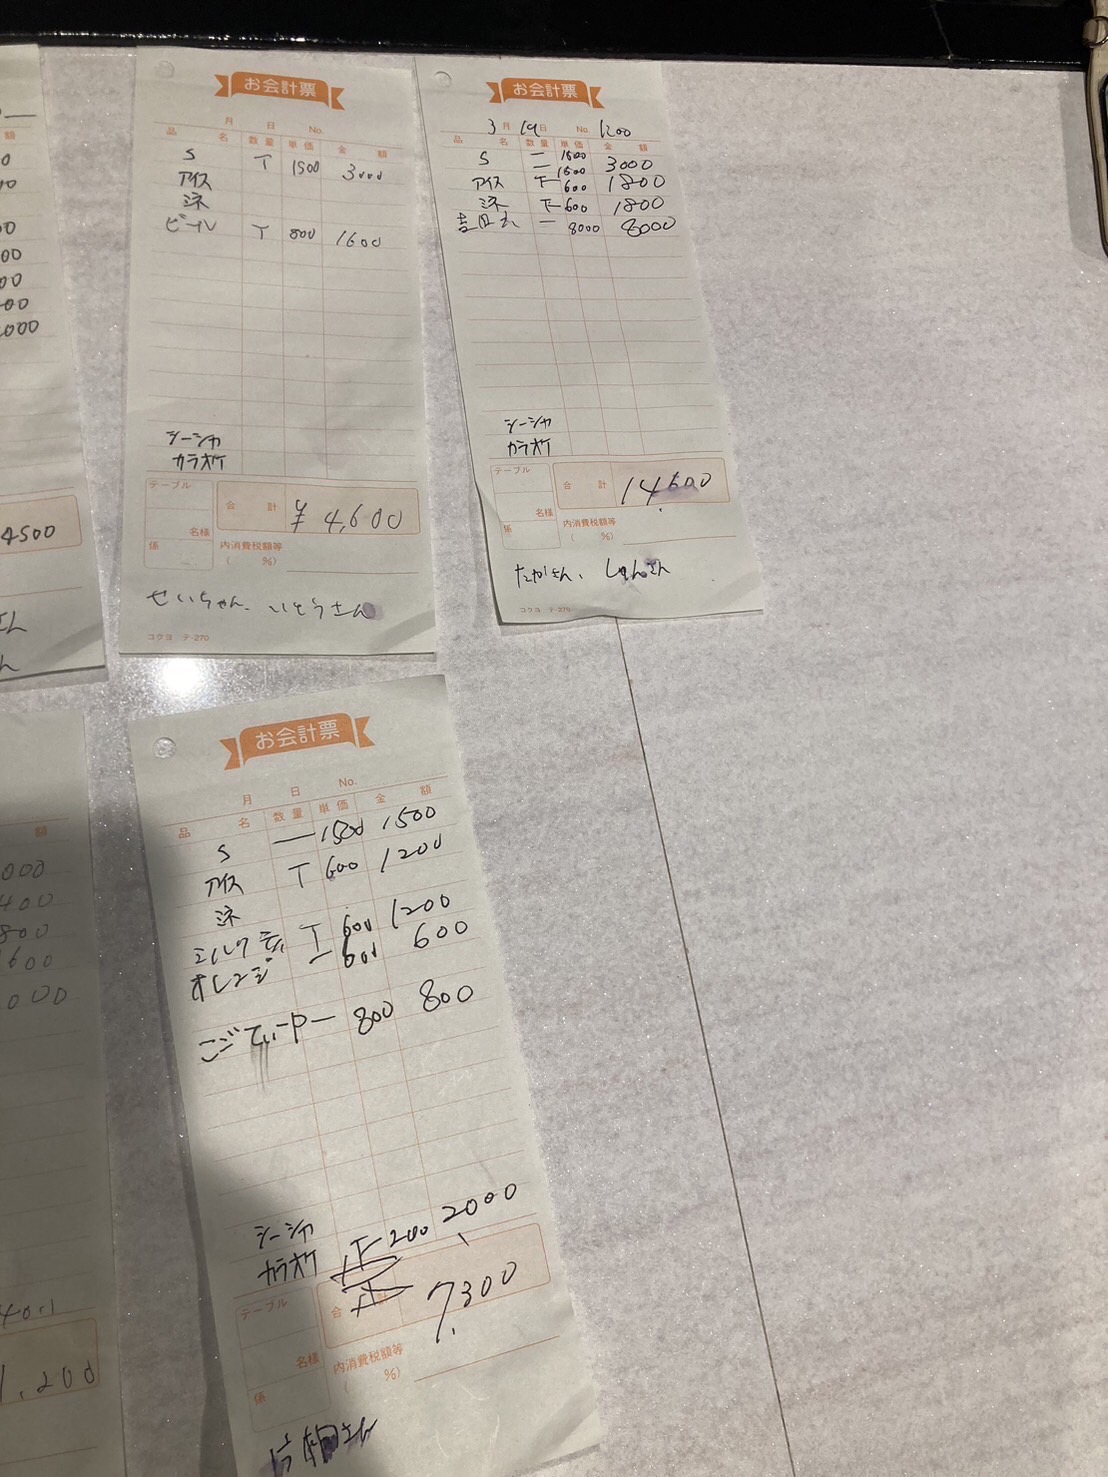 額
00
00
00
000
4500
さん
お会計票
月 日 No.
品 名 数量 単価 金 額
S T 1500 3000
アイス
ミネ
ビール T 800 1600
シーシャ
カラオケ
テーブル
合 計 ¥4,600
名様
係 内消費税額等
( %)
せいちゃん、いとうさん
コクヨ テ-270
お会計票
3月19日 No. 1200
品 名 数量 単価 金 額
S 一 1500
二 1500 3000
アイス 下 600 1800
ミネ 下 600 1800
一 8000 8000
シーシャ
カラオケ
テーブル
合 計 14,600
名様
係 内消費税額等
( %)
たかさん、しゅんさん
コクヨ テ-270
額
000
400
800
600
000
1,200
お会計票
月 日 No.
品 名 数量 単価 金 額
S 一 1500 1500
アイス T 600 1200
ミネ
ミルクティ T 600 1200
オレンジ 一 600 600
一 800 800
シーシャ
カラオケ 200 2000
テーブル
合 計 7,300
名様
係 内消費税額等
( %)
さん